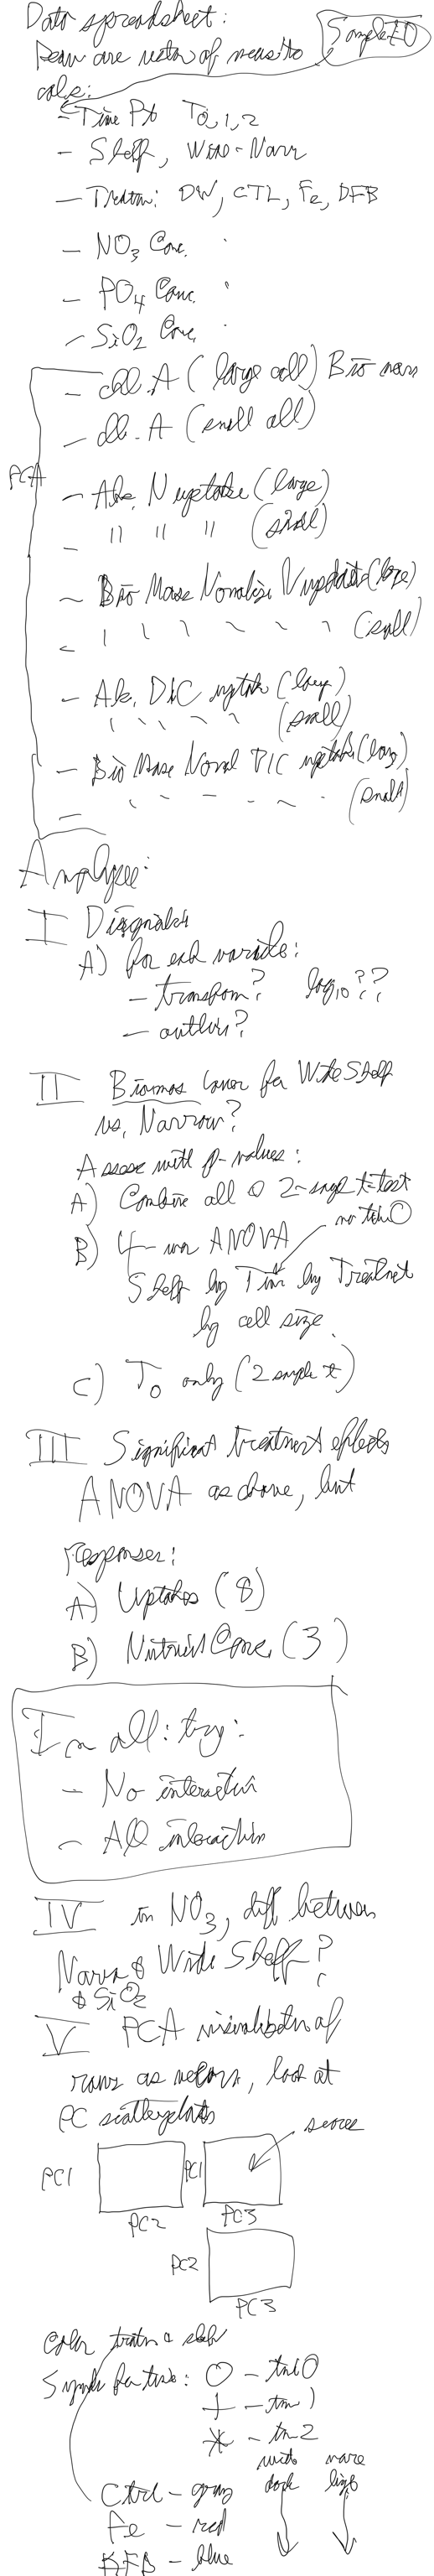 Data spreadsheet:
Rows are vector of meas. to Sample ID
cols:
- Time Pt T0,1,2
- Shelf, Wide-Narr
- Treatm: DW, CTL, Fe, DFB
- NO3 Conc.
- PO4 Conc. "
- SiO2 Conc.
- chl. A (large cell) Bio mass
- chl. A (small cell)
PCA
- Abs. N uptake (large)
- " " " (small)
- Bio Mass Normalize N uptake (large)
- (small)
- Abs. DIC uptake (large)
(small)
- Bio Mase Normal DIC uptake (large)
- (small)
Analyses:
I Diagnostics
A) for each variable:
- transform? log10??
- outliers?
II Biomass lower for Wide Shelf
vs. Narrow?
Assess with p-values:
A) Combine all & 2-sample t-test
B) 4-way ANOVA no time 0
Shelf by Time by Treatment
by cell size
C) T0 only (2 sample t)
III Significant treatment effects
ANOVA as above, but
responses:
A) Uptakes (8)
B) Nutrient Conc. (3)
In all: try:
- No interaction
- All interactions
IV in NO3, diff between
Narrow & Wide Shelf?
& SiO2
V PCA visualization of
rows as vectors, look at
PC scatterplots
scores
PC1 PC1
PC2 PC3
PC2
PC3
Color treatm & shelf
Symbol for time: O - time 0
+ - time 1
* - time 2
wide narr
dark light
Ctrl - gray
Fe - red
DFB - blue